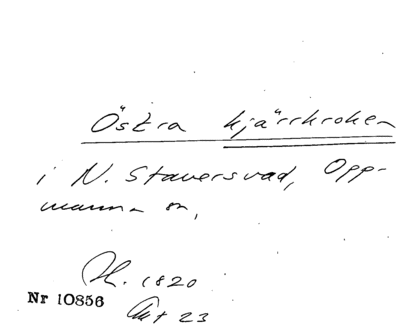 Östra kjärrkroken
i N. Staversvad, Opp-
manna sn,
H. 1820
Nr 10856
Akt 23